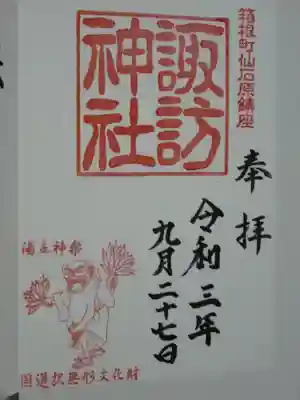 箱根町仙石原鎮座
奉拝
諏訪神社
令和三年
九月二十七日
湯立神楽
国選択無形文化財